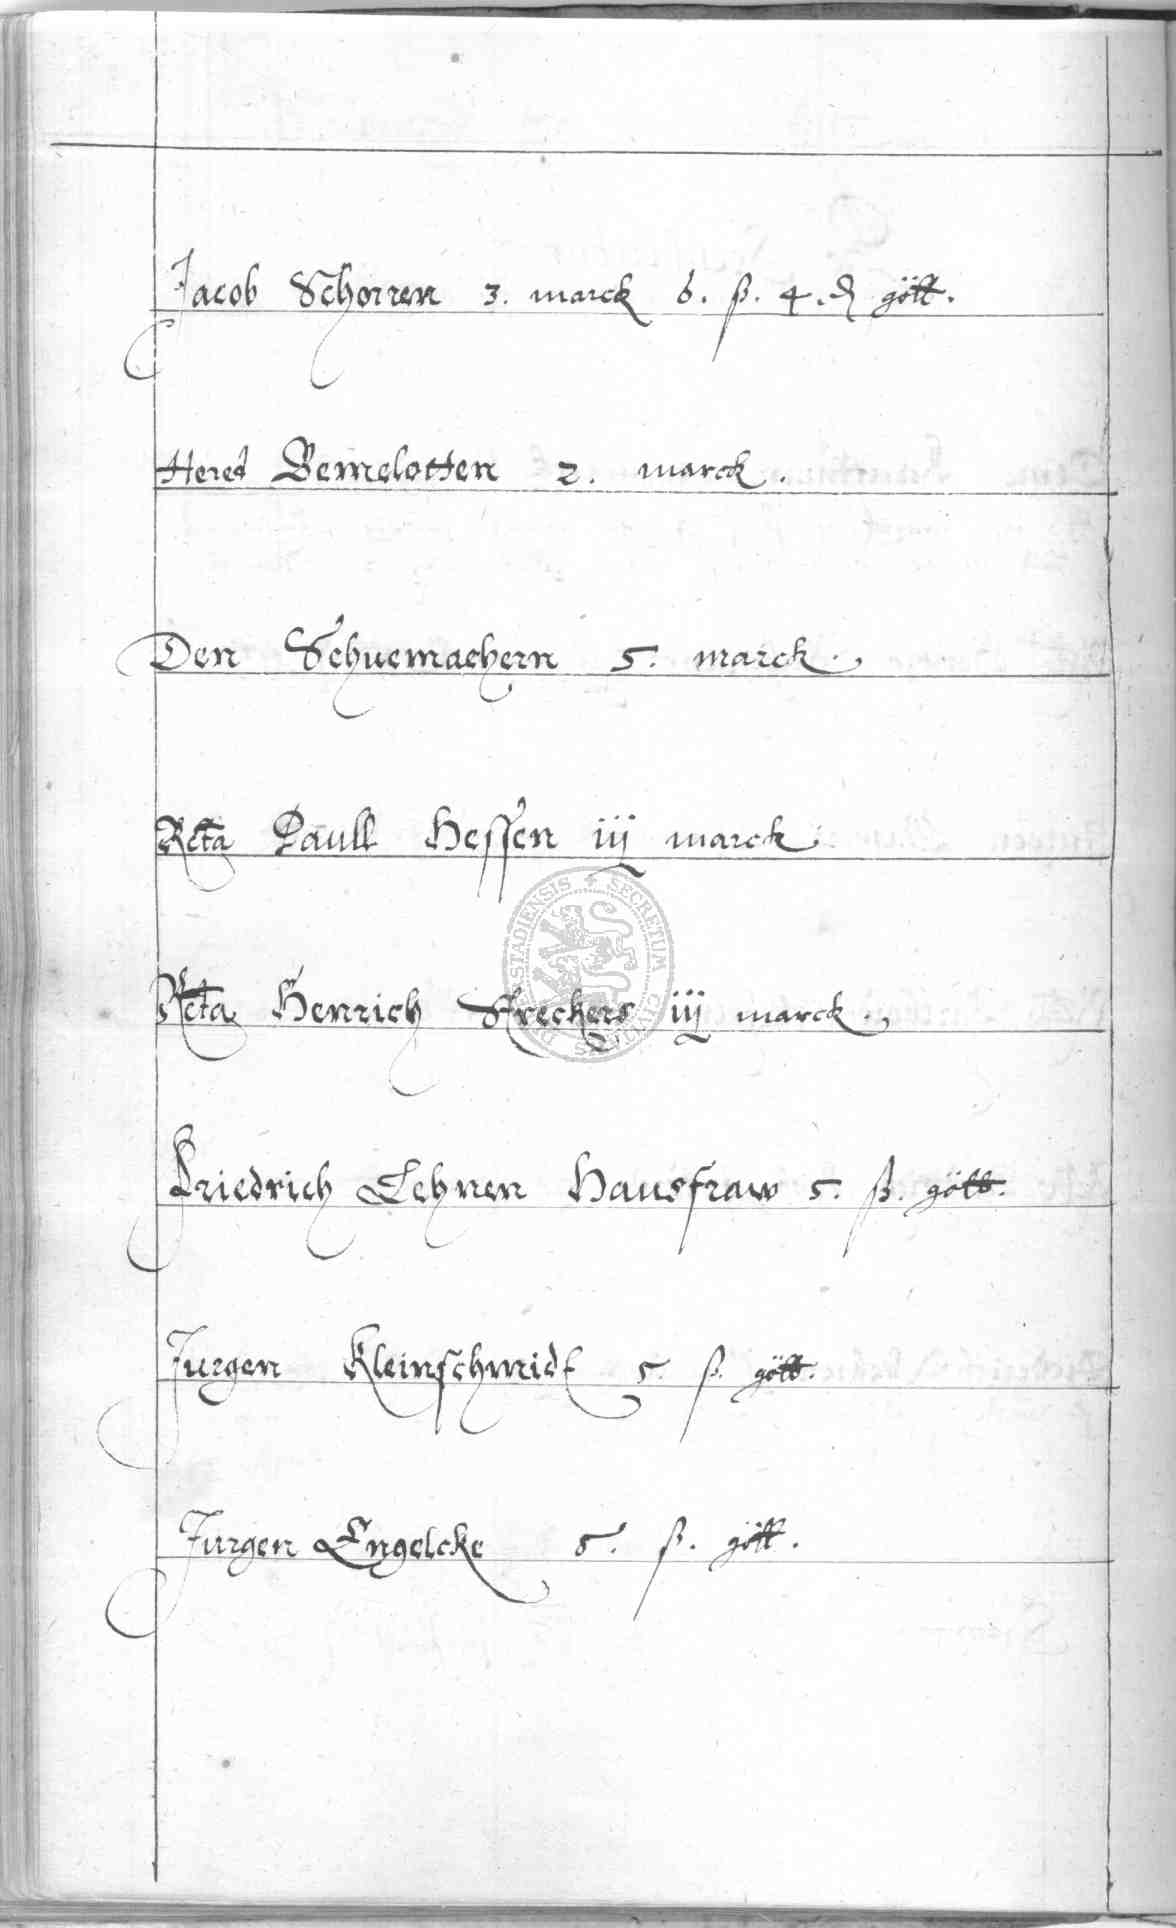 Jacob Schorren 3. marck 6. ß. 4. ₰ gött.
Hered Bemelotten 2. marck.
Den Schuemachern 5. marck.
Rcta Paull Hessen iij marck
Rcta Henrich Streckers iij marck.
Friedrich Lehnen Hausfraw 5. ß. gött.
Jurgen Kleinschmidt 5. ß. gött.
Jurgen Engelcke 5. ß. gött.
SECRETUM CIVITATIS DUDERSTADIENSIS